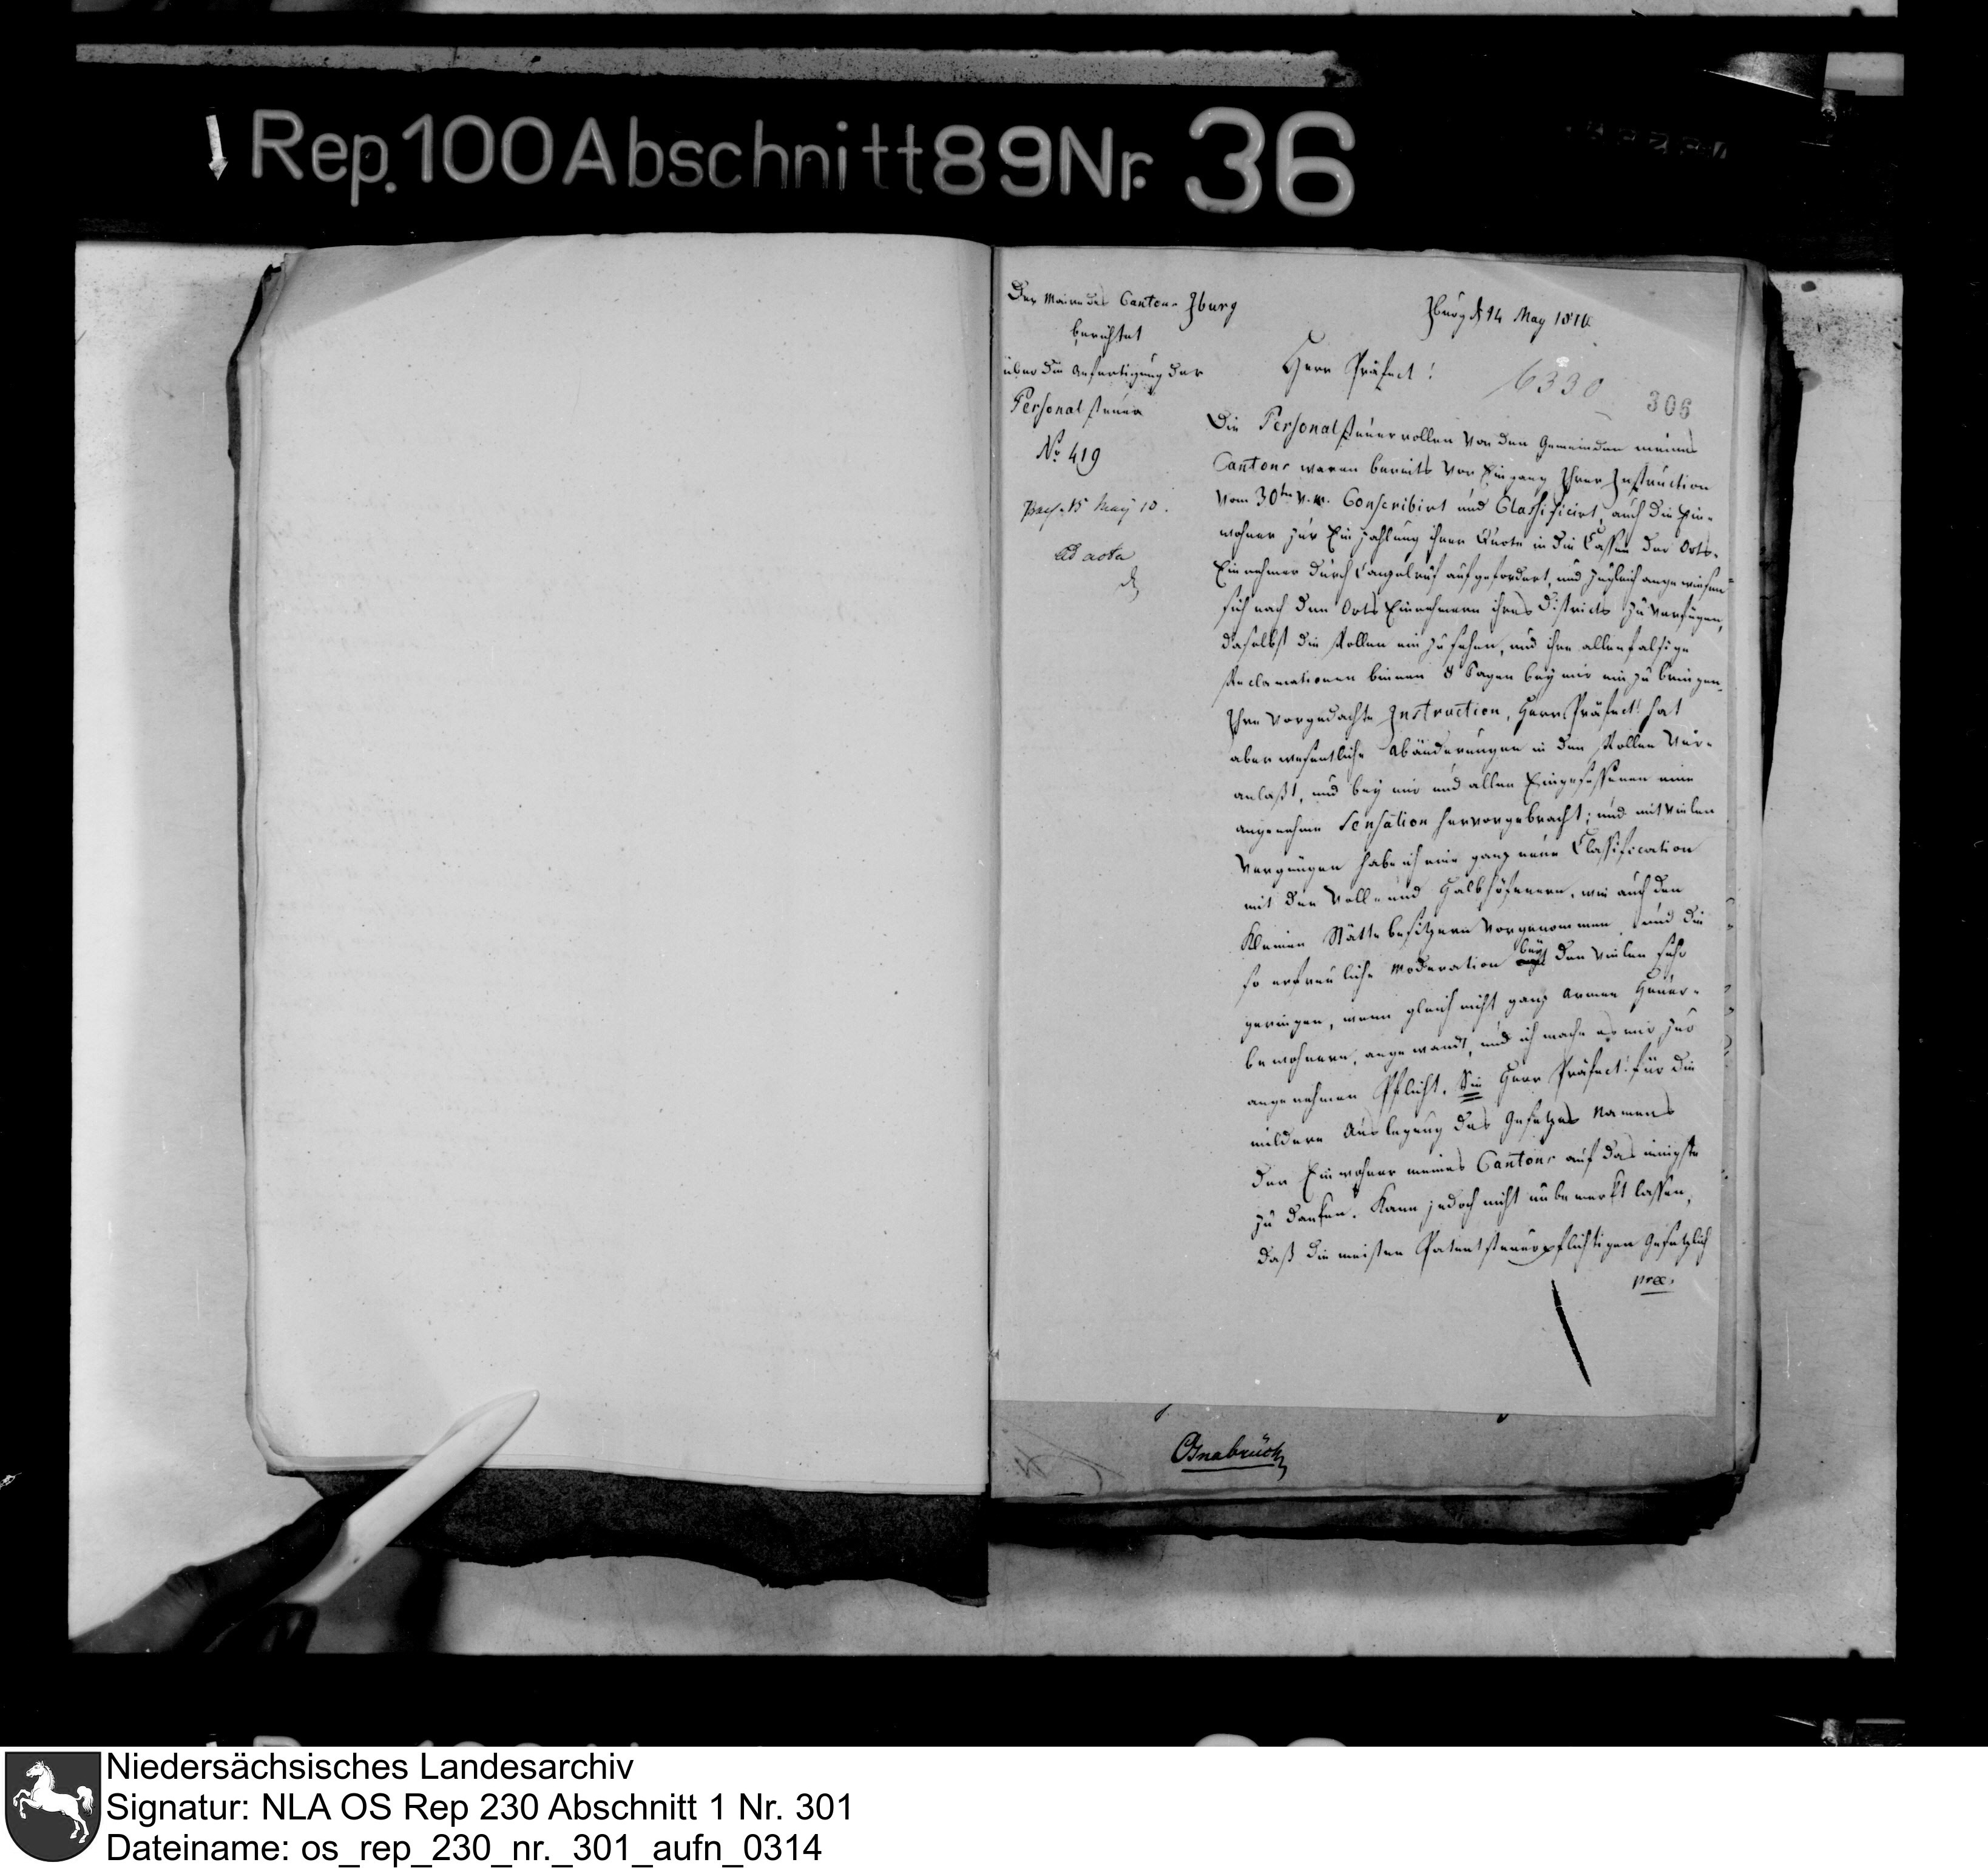 Rep. 100 Abschnitt 89 Nr. 36
Der Maire des Cantons Iburg
berichtet
über die Anfertigung der
Personal steuer
No 419
praes. 15 May 10.
ad acta
Iburg d 14 May 1810
Herr Präfect!
6330
306
Die Personalsteuerrollen von den Gemeinden meines
Cantons waren bereits vor Eingang Ihrer Instruction
vom 30ten v. M. Conscribirt und Classificirt, auch die Ein-
wohner zur Einzahlung ihrer Quote in die Cassen der Orts-
Einnehmer durch Canzelruf aufgefordert, und zugleich angewiesen
sich nach den Orts Einnehmern ihres Districts zu verfügen,
daselbst die Rollen ein zu sehen, und ihre allenfalsige
Reclamationen binnen 8 Tagen bey mir ein zu bringen.
Ihre vorgedachte Instruction, Herr Präfect! hat
aber wesentliche Abänderungen in den Rollen ver-
anlaßt, und bey mir und allen Eingesessenen eine
angenehme Sensation hervorgebracht; und mit vielen
Vergnügen habe ich eine ganz neue Classification
mit den Voll- und Halbhöfenern, wie auch den
kleinen Stättebesitzern vorgenommen, und die
so erfreuliche Moderation bey den vielen sehr
geringen, wenn gleich nicht ganz armen Heuer-
bewohnern, angewandt, und ich mache es mir zur
angenehmen Pflicht, Sie Herr Präfect! für die
mildere Auslegung des Gesetzes Namens
der Einwohner meines Cantons auf das innigste
zu danken. Kann jedoch nicht unbemerkt lassen,
daß die meisten Patentsteuerpflichtigen gesetzlich
Osnabrück
Niedersächsisches Landesarchiv
Signatur: NLA OS Rep 230 Abschnitt 1 Nr. 301
Dateiname: os_rep_230_nr._301_aufn_0314